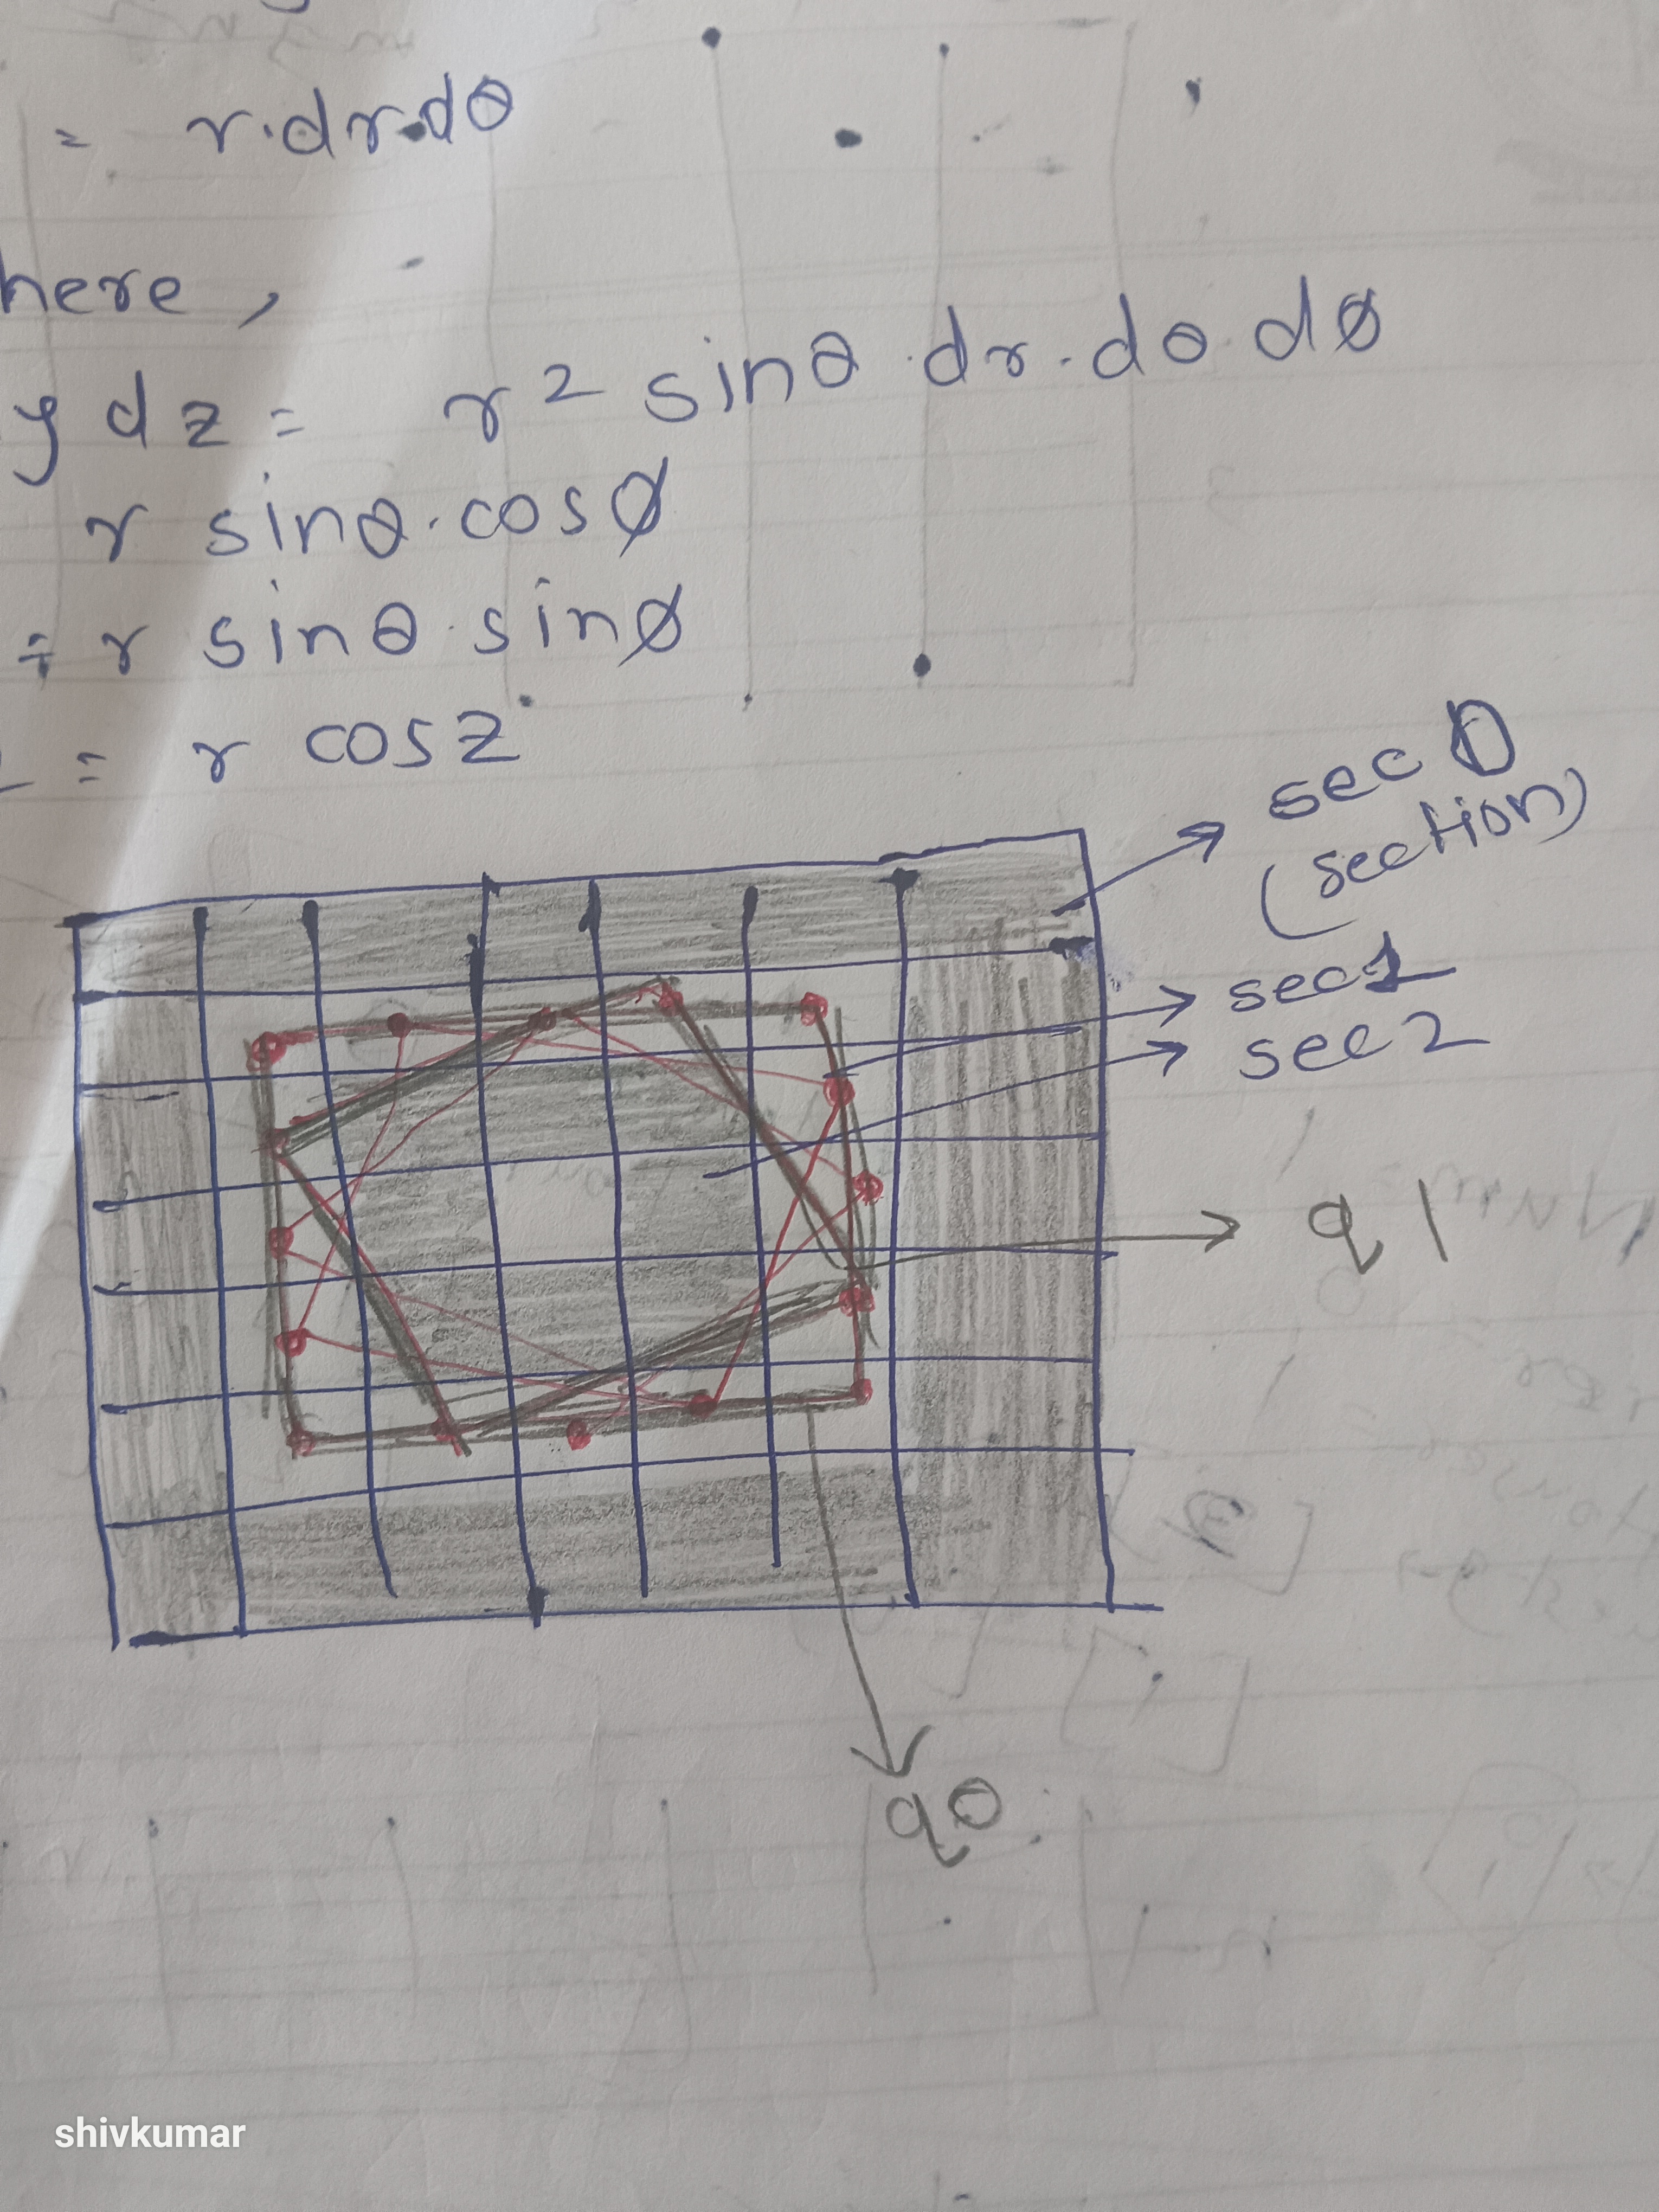 = r.dr.dθ
here,
y dz = r² sinθ.dr.dθ.dø
r sinθ.cosø
= r sinθ.sinø
= r cosz
sec 0
(section)
sec 1
sec 2
q1
q0
shivkumar